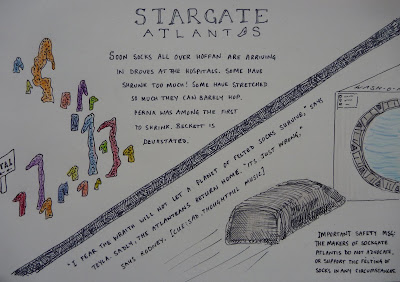 STARGATE
ATLANTIS
SOON SOCKS ALL OVER HOFFAN ARE ARRIVING
IN DROVES AT THE HOSPITALS. SOME HAVE
SHRUNK TOO MUCH! SOME HAVE STRETCHED
SO MUCH THEY CAN BARELY HOP.
PERNA WAS AMONG THE FIRST
TO SHRINK. BECKETT IS
DEVASTATED.
"I FEAR THE WRAITH WILL NOT LET A PLANET OF FELTED SOCKS SURVIVE," SAYS
TEYLA. SADLY, THE ATLANTEANS RETURN HOME. "IT'S JUST WRONG,"
SAYS RODNEY. [CUE: SAD THOUGHTFUL MUSIC]
WASH-O-
IMPORTANT SAFETY MSG:
THE MAKERS OF SOCKGATE
ATLANTIS DO NOT ADVOCATE,
OR SUPPORT THE FELTING OF
SOCKS IN ANY CIRCUMSTANCES.